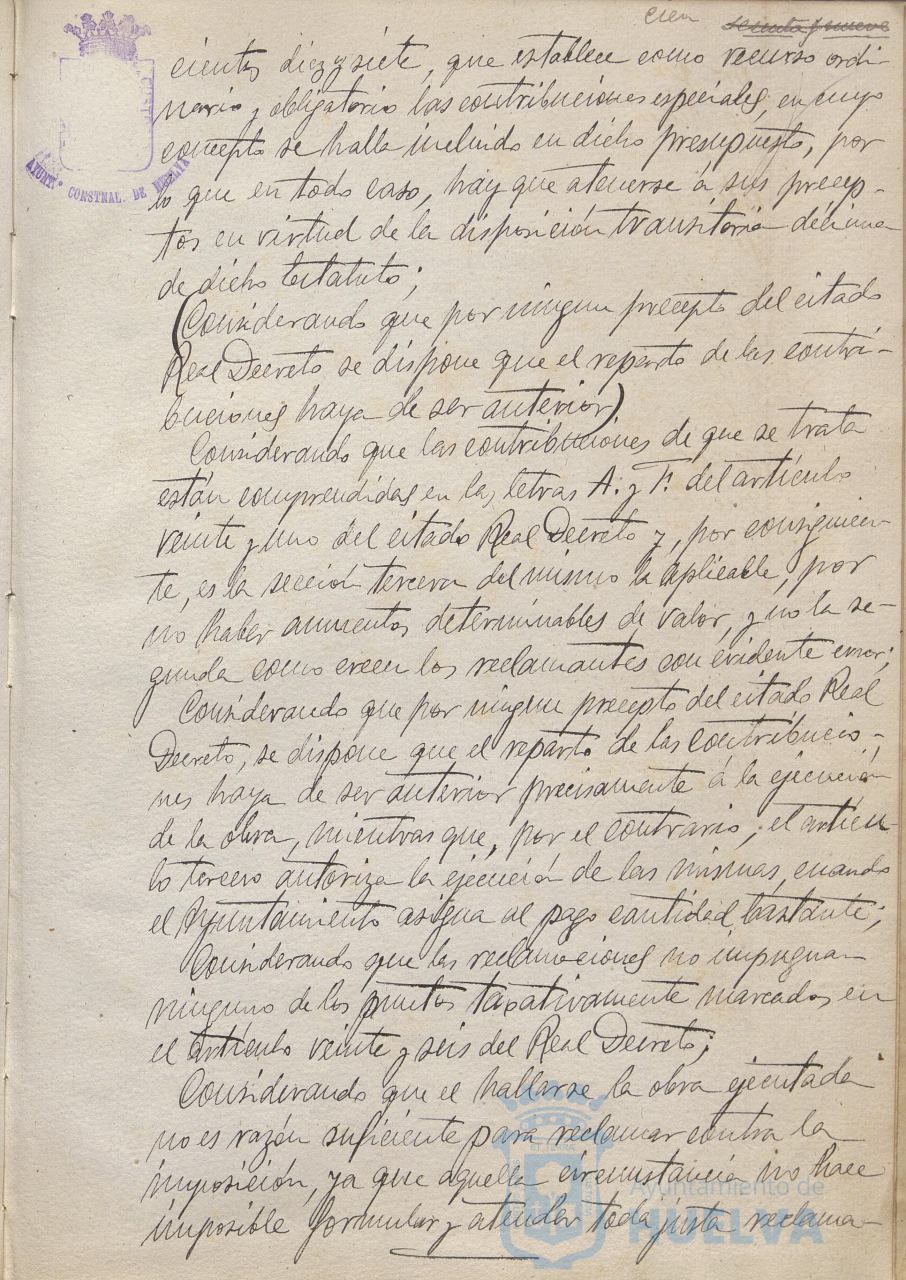 cien sesenta y nueve
AYUNT.º CONSTNAL. DE HUELVA
cientos diez y siete, que establece como recurso ordi-
nario y obligatorio las contribuciones especiales, en cuyo
concepto se halla incluido en dicho presupuesto, por
lo que en todo caso, hay que atenerse á sus precep-
tos en virtud de la disposición transitoria décima
de dicho Estatuto;
(Considerando que por ningun precepto del citado
Real Decreto se dispone que el reparto de las contri-
buciones haya de ser anterior)
Considerando que las contribuciones de que se trata
están comprendidas en las letras A. y F. del artículo
veinte y uno del citado Real Decreto y, por consiguien-
te, es la sección tercera del mismo la aplicable, por
no haber aumentos determinables de valor, y no la se-
gunda como creen los reclamantes con evidente error;
Considerando que por ningun precepto del citado Real
Decreto, se dispone que el reparto de las contribucio-
nes haya de ser anterior precisamente á la ejecución
de la obra, mientras que, por el contrario, el artícu-
lo tercero autoriza la ejecución de las mismas, cuando
el Ayuntamiento asigna al pago cantidad bastante;
Considerando que las reclamaciones no impugnan
ninguno de los puntos taxativamente marcados en
el artículo veinte y seis del Real Decreto;
Considerando que el hallarse la obra ejecutada
no es razón suficiente para reclamar contra la
imposición, ya que aquella circunstancia no hace
imposible formular y atender toda justa reclama-
Ayuntamiento de
HUELVA